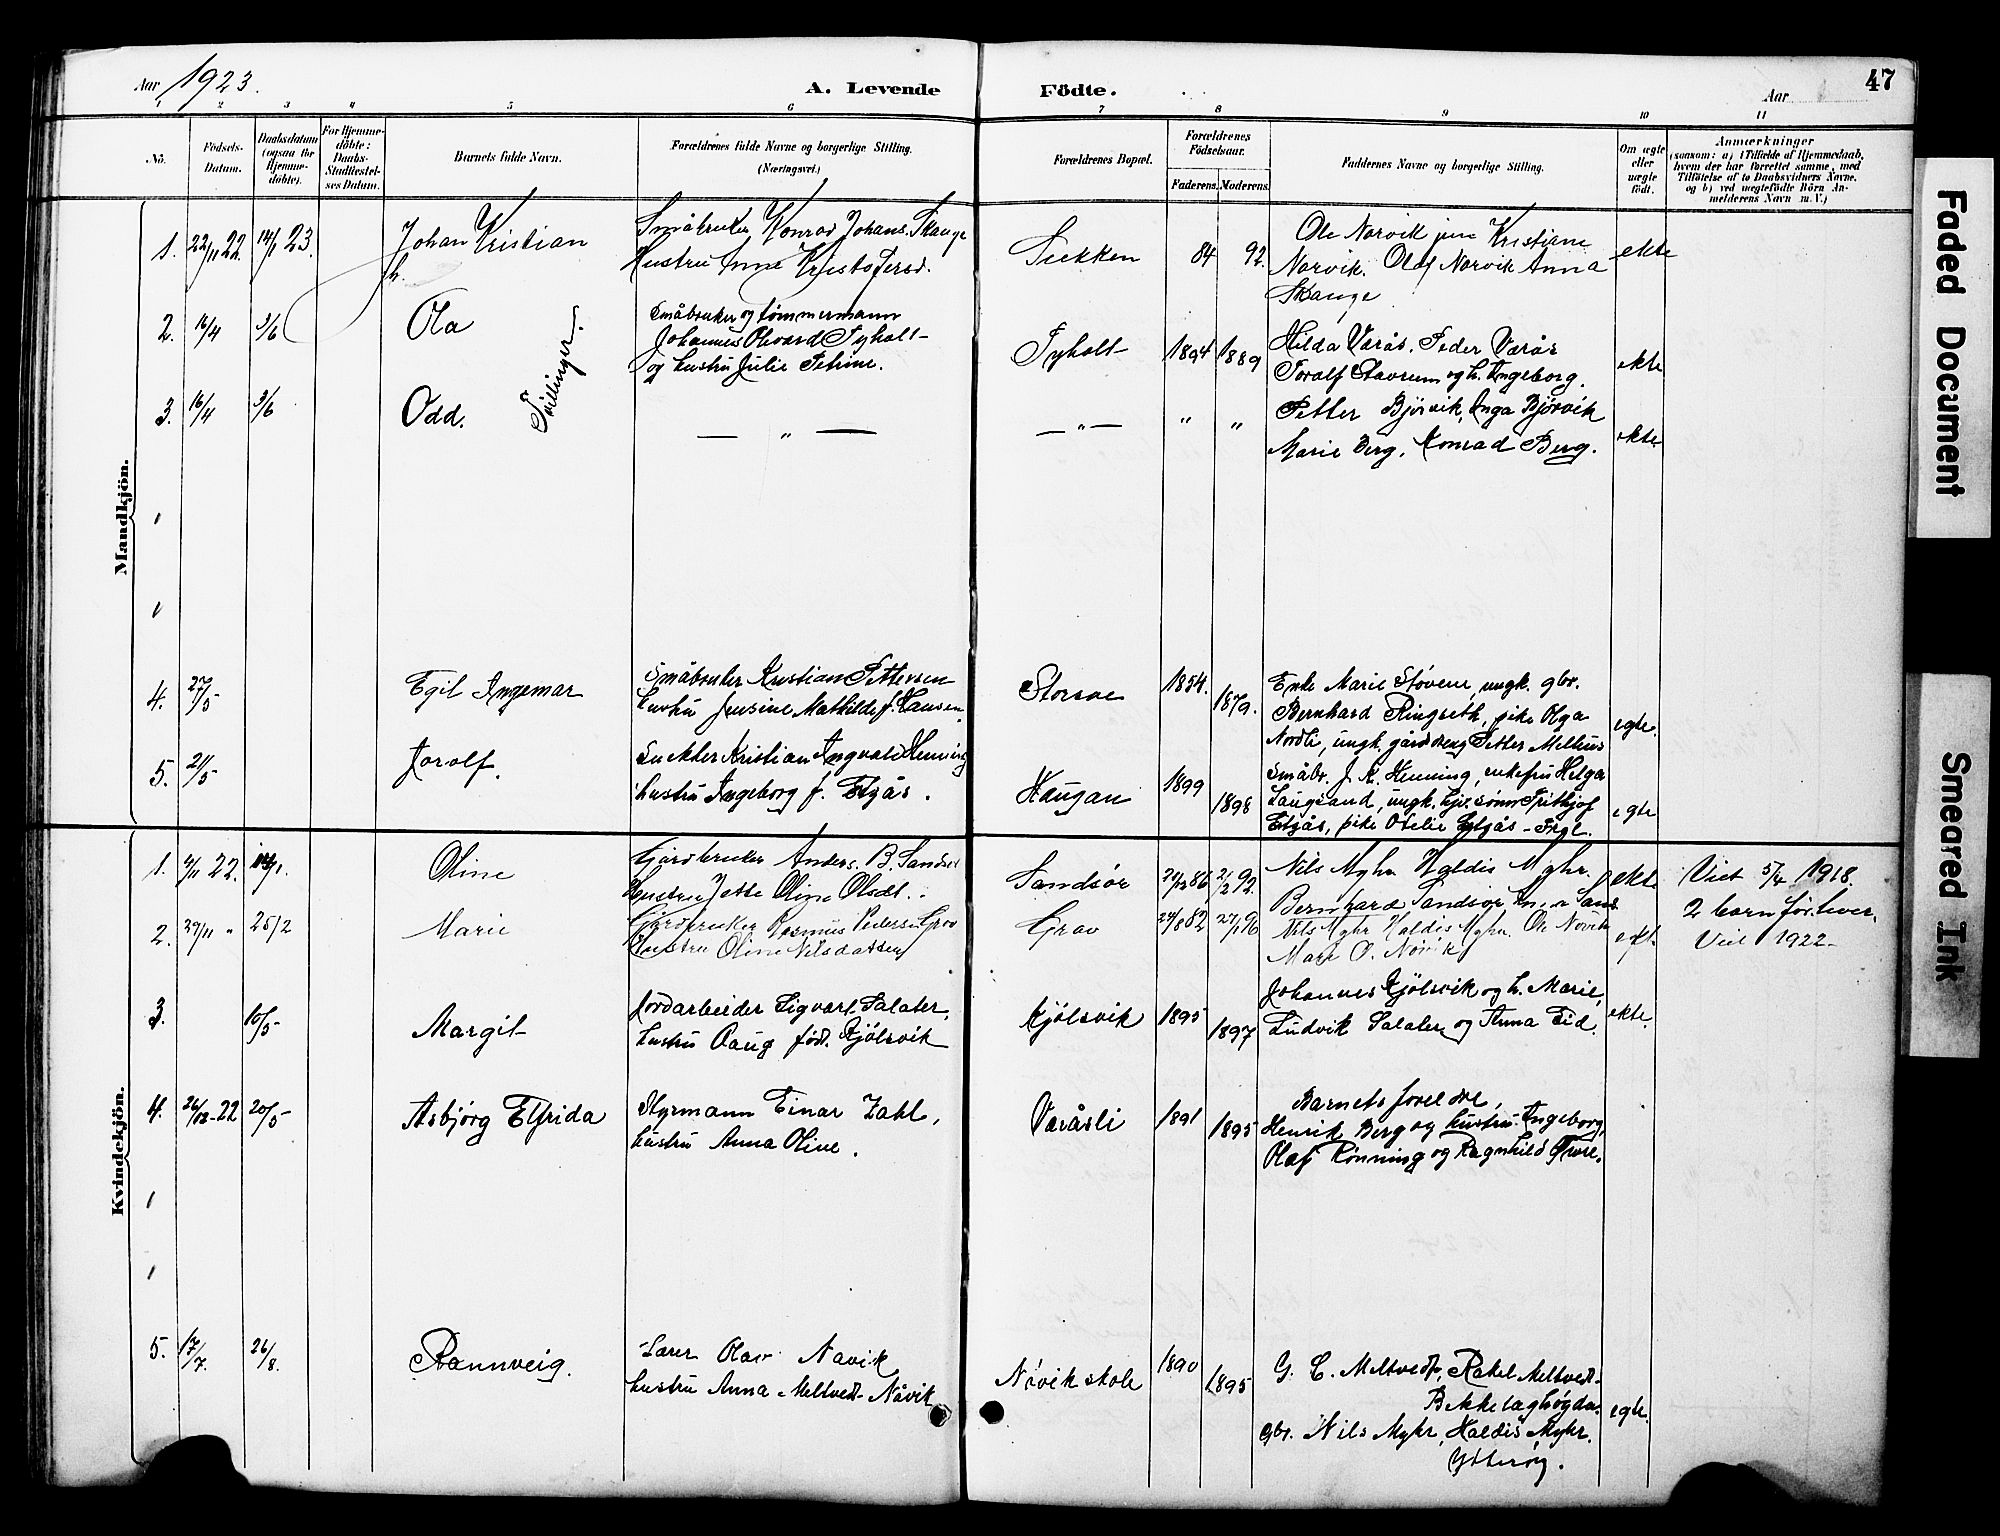 Aar 1923.
A. Levende Födte.
Aar
47
1 2 3 4 5 6 7 8 9 10 11
No.
Födsels-
Datum.
Daabsdatum
(ogsaa for
Hjemme-
döbte).
For Hjemme-
döbte:
Daabs-
Stadfæstel-
ses Datum.
Barnets fulde Navn.
Forældrenes fulde Navne og borgerlige Stilling.
(Næringsvei.)
Forældrenes Bopæl.
Forældrenes
Födselsaar.
Faderens. Moderens.
Faddernes Navne og borgerlige Stilling.
Om ægte
eller
uægte
födt.
Anmærkninger
(saasom: a) i Tilfælde af Hjemmedaab,
hvem der har forrettet samme, med
Tilföielse af to Daabsvidners Navne.
og b) ved uægtefödte Börn An-
melderens Navn m. V.)
Mandkjön.
1. 22/11 22. 14/1 23.
Johan Kristian
h.
Småbruker Konrad Johans. Skauge
Hustru Anne Kristofersd.
Sekken
84 92.
Ole Norvik jun Kristiane
Norvik. Olaf Norvik Anna
Skauge
ekte
2. 16/4 3/6
Ola
Tvillinger.
Småbruker og tømmermann
Johannes Olvard Tyholt-
og hustru Julie Petrine.
Tyholt
1894 1889
Hilda Værås, Peder Værås
Toralf Stavrum og h. Ingeborg.
ekte
3. 16/4 3/6
Odd.
— „ —
— „ —
„ „
Petter Bjørvik, Inga Bjørvik
Marie Berg, Konrad Berg.
ekte
4. 27/5
Egil Ingemar
Småbruker Kristian Pettersen
hustru Jensine Mathilde f. Hansen.
Storsve
1854. 1879.
Enke Marie Støvene, ungk. gbr.
Bernhard Ringseth, pike Olga
Nordli, ungk. gårddreng Petter Melhus
egte.
5. 21/5
Jorolf.
Snekker Kristian Ingvald Henning
hustru Ingeborg f. Elgås.
Haugan
1899 1898
Småbr. J. K. Henning, enkefru Helga
Laugsand, ungk. hjv. sönn Fritjof
Elgås, pike Otelie Elgås -
egte
Kvindekjön.
1. 4/11 22. 14/1.
Oline
Gårdbruker Anders. B. Sandsör
Hustru Jette Oline Olsdt.
Sandsör
21/12 86, 21/2 92.
Nils Myhr Haldis Myhr.
Bernhard Sandsör
ekte
Viet 5/4 1918.
2 barn før. lever.
2. 29/11 „ 25/2
Marie
Gårdbruker Rasmus Pedersen Grav
Hustru Oline Nilsdatter
Grav
24/8 82 27/1 96
Nils Myhr Haldis Myhr. Ole Növik
Marie O. Növik
egt.
Viet 1922-
3. 10/5-
Margit
Jordarbeider Sigvart Salater,
hustru Oaug født Kjölsvik
Kjölsvik
1895 1897
Johannes Kjölsvik og h. Marie,
Ludvik Salater og Anna Eid.
ekte.
4. 26/12-22 20/5-
Asbjørg Elfrida
Styrmann Einar Zahl,
hustru Anna Oline.
Væråsli
1891 1895
Barnets foreldre,
Henrik Berg og hustru Ingeborg,
Olaf Rönning og Ragnhild
5. 17/7. 26/8.
Rannveig.
Lærer Olav Nävik
hustru Anna Meltvedt-Nävik
Növik skole
1890 1895
G. C. Meltvedt, Rakel Meltvedt-
Bekkelagshögda.
gbr. Nils Myhr, Haldis Myhr.
Ytteröy.
egte.
Faded Document
Smeared Ink